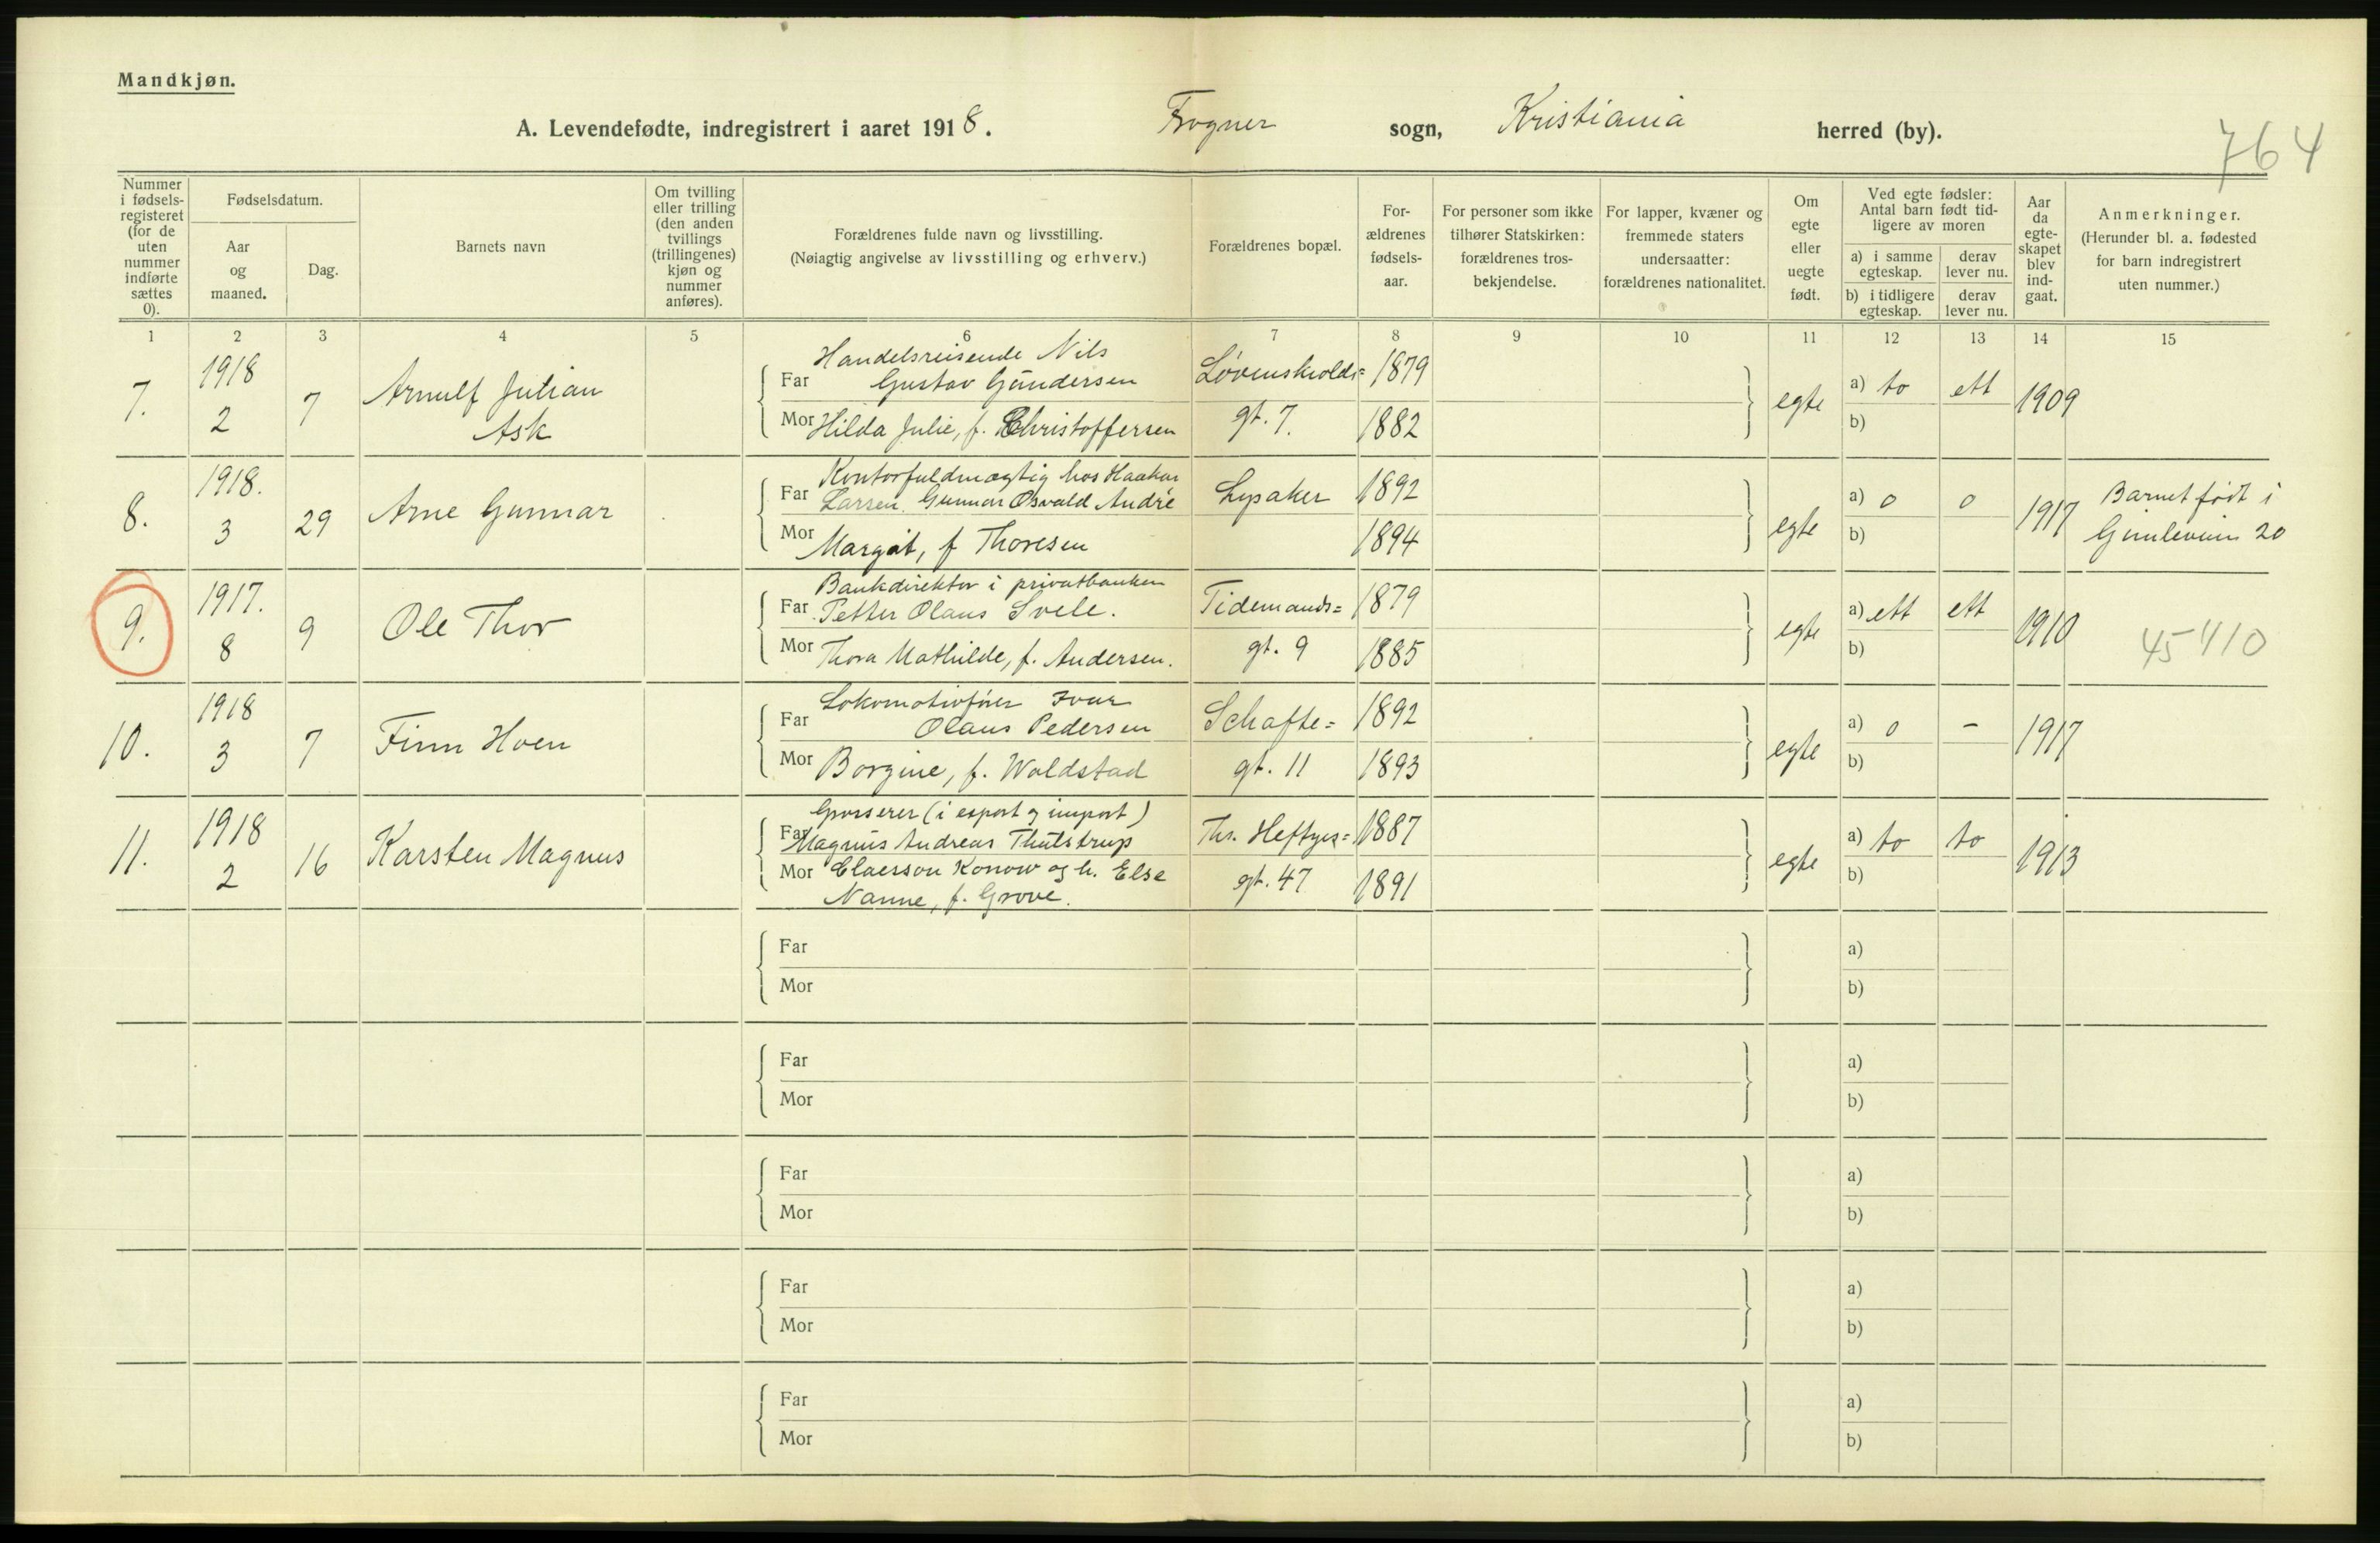 Mandkjøn.
A. Levendefødte, indregistrert i aaret 1918. Frogner sogn, Kristiania herred (by).
764
Nummer i fødsels-registeret (for de uten nummer indførte sættes 0).
Fødselsdatum.
Aar og maaned.
Dag.
Barnets navn
Om tvilling eller trilling (den anden tvillings (trillingenes) kjøn og nummer anføres).
Forældrenes fulde navn og livsstilling.
(Nøiagtig angivelse av livsstilling og erhverv.)
Forældrenes bopæl.
For-ældrenes fødsels-aar.
For personer som ikke tilhører Statskirken: forældrenes tros-bekjendelse.
For lapper, kvæner og fremmede staters undersaatter: forældrenes nationalitet.
Om egte eller uegte født.
Ved egte fødsler: Antal barn født tid-ligere av moren
a) i samme egteskap.
derav lever nu.
b) i tidligere egteskap.
derav lever nu.
Aar da egte-skapet blev ind-gaat.
Anmerkninger.
(Herunder bl. a. fødested for barn indregistrert uten nummer.)
1 2 3 4 5 6 7 8 9 10 11 12 13 14 15
7. 1918 2 7 Arnulf Julian Ask
Handelsreisende Nils
Far Gustav Gundersen
Mor Hilda Julie, f. Christoffersen
Løvenskiolds= gt. 7.
1879
1882
egte a) to ett 1909
b)
8. 1918. 3 29 Arne Gunnar
Kontorfuldmægtig hos Haakon
Far Larsen. Gunnar Osvald André
Mor Margit, f Thoresen
Lysaker
1892
1894
egte a) 0 0 1917
b)
Barnet født i
20
9. 1917. 8 9 Ole Thor
Bankdirektør i privatbanken
Far Petter Olaus Svele.
Mor Thora Mathilde, f. Andersen.
Tidemands= gt. 9
1879
1885
egte a) ett ett 1910
b)
10. 1918 3 7 Finn Hoen
Lokomotivfører Ivar
Far Olaus Pedersen
Mor Borgine, f. Woldstad
Schafte= gt. 11
1892
1893
egte a) 0 – 1917
b)
11. 1918 2 16 Karsten Magnus
Grosserer (i export og import)
Far Magnus Andreas Thulstrup
Mor Claesson Konow og h. Else
Nanne, f. Grove.
Ths. Heftyes= gt. 47
1887
1891
egte a) to to 1913
b)
Far
Mor
a)
b)
Far
Mor
a)
b)
Far
Mor
a)
b)
Far
Mor
a)
b)
Far
Mor
a)
b)